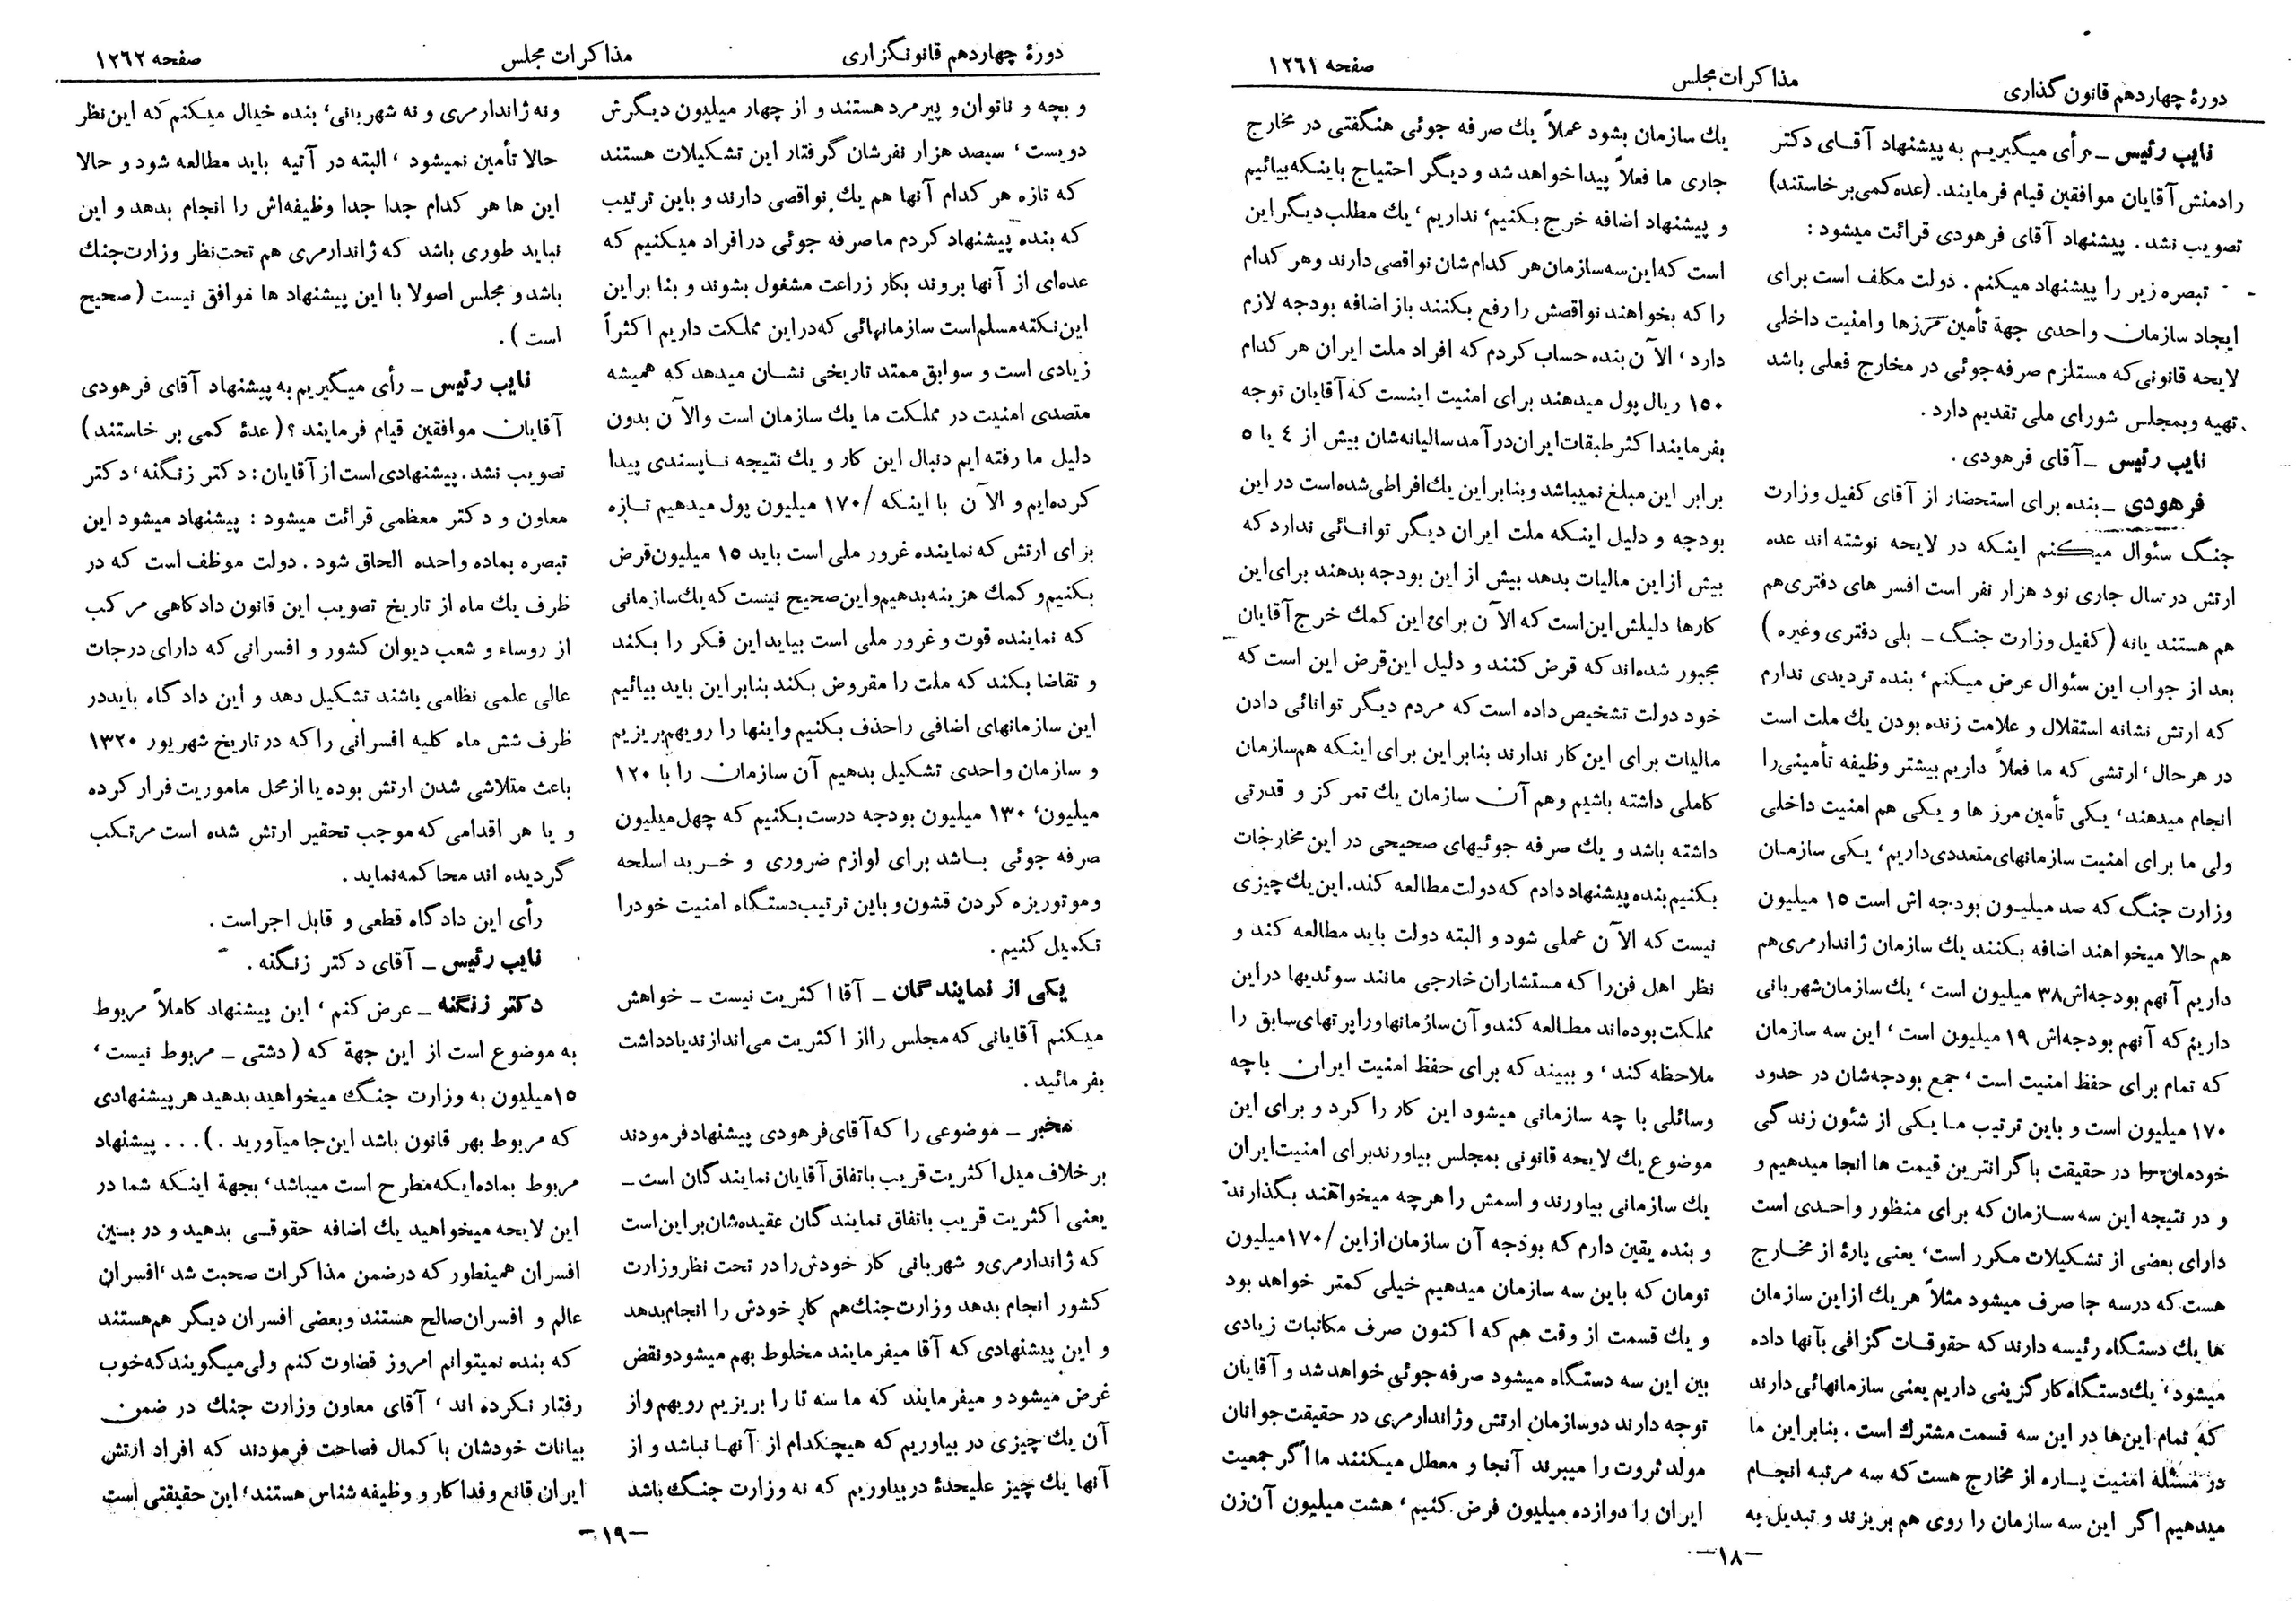 دورهٔ چهاردهم قانون گذاری
مذاکرات مجلس
صفحه ۱۲۶۱
نایب رئیس ـ رأی میگیریم به پیشنهاد آقای دکتر
رادمنش آقایان موافقین قیام فرمایند. (عده کمی برخاستند)
تصویب نشد . پیشنهاد آقای فرهودی قرائت میشود :
تبصره زیر را پیشنهاد میکنم . دولت مکلف است برای
ایجاد سازمان واحدی جهة تأمین مرزها و امنیت داخلی
لایحه قانونی که مستلزم صرفه جوئی در مخارج فعلی باشد
تهیه وبمجلس شورای ملی تقدیم دارد .
نایب رئیس ـ آقای فرهودی .
فرهودی ـ بنده برای استحضار از آقای کفیل وزارت
جنگ سئوال میکنم اینکه در لایحه نوشته اند عده
ارتش در سال جاری نود هزار نفر است افسر های دفتری هم
هم هستند یانه ( کفیل وزارت جنگ ـ بلی دفتری وغیره )
بعد از جواب این سئوال عرض میکنم ، بنده تردیدی ندارم
که ارتش نشانه استقلال و علامت زنده بودن یك ملت است
در هر حال ، ارتشی که ما فعلاً داریم بیشتر وظیفه تأمینی را
انجام میدهند ، یکی تأمین مرز ها و یکی هم امنیت داخلی
ولی ما برای امنیت سازمانهای متعددی داریم ، یکی سازمان
وزارت جنگ که صد میلیون بودجه اش است ۱۵ میلیون
هم حالا میخواهند اضافه بکنند یك سازمان ژاندارمری هم
داریم آنهم بودجه‌اش ۳۸ میلیون است ، یك سازمان شهربانی
داریم که آنهم بودجه‌اش ۱۹ میلیون است ، این سه سازمان
که تمام برای حفظ امنیت است ، جمع بودجه‌شان در حدود
۱۷۰ میلیون است و باین ترتیب ما یکی از شئون زندگی
خودمان را در حقیقت با گرانترین قیمت ها انجا میدهیم و
و در نتیجه این سه سازمان که برای منظور واحدی است
دارای بعضی از تشکیلات مکرر است ، یعنی پارهٔ از مخارج
هست که درسه جا صرف میشود مثلاً هریك از این سازمان
ها یك دستگاه رئیسه دارند که حقوقات گزافی بآنها داده
میشود ، یك دستگاه کارگزینی داریم یعنی سازمانهائی دارند
که تمام این‌ها در این سه قسمت مشترك است . بنابراین ما
در مسئله امنیت پاره از مخارج هست که سه مرتبه انجام
میدهیم اگر این سه سازمان را روی هم بریزند و تبدیل به
یك سازمان بشود عملاً یك صرفه جوئی هنگفتی در مخارج
جاری ما فعلاً پیدا خواهد شد و دیگر احتیاج باینکه بیائیم
و پیشنهاد اضافه خرج بکنیم ، نداریم ، یك مطلب دیگر این
است که این سه سازمان هر کدام شان نواقصی دارند وهر کدام
را که بخواهند نواقصش را رفع بکنند باز اضافه بودجه لازم
دارد ، الآن بنده حساب کردم که افراد ملت ایران هر کدام
۱۵۰ ریال پول میدهند برای امنیت اینست که آقایان توجه
بفرمایند اکثر طبقات ایران درآمد سالیانه‌شان بیش از ٤ یا ٥
برابر این مبلغ نمیباشد و بنابراین یك افراطی شده است در این
بودجه و دلیل اینکه ملت ایران دیگر توانائی ندارد که
بیش از این مالیات بدهد بیش از این بودجه بدهند برای این
کارها دلیلش این است که الآن برای این کمك خرج آقایان
مجبور شده‌اند که قرض کنند و دلیل این قرض این است که
خود دولت تشخیص داده است که مردم دیگر توانائی دادن
مالیات برای این کار ندارند بنابراین برای اینکه هم سازمان
کاملی داشته باشیم وهم آن سازمان یك تمرکز و قدرتی
داشته باشد و یك صرفه جوئیهای صحیحی در این مخارجات
بکنیم بنده پیشنهاد دادم که دولت مطالعه کند . این یك چیزی
نیست که الآن عملی شود و البته دولت باید مطالعه کند و
نظر اهل فن را که مستشاران خارجی مانند سوئدیها در این
مملکت بوده‌اند مطالعه کند و آن سازمانها وراپرتهای سابق را
ملاحظه کند ، و ببیند که برای حفظ امنیت ایران باچه
وسائلی با چه سازمانی میشود این کار را کرد و برای این
موضوع یك لایحه قانونی بمجلس بیاورند برای امنیت ایران
یك سازمانی بیاورند و اسمش را هرچه میخواهند بگذارند
و بنده یقین دارم که بودجه آن سازمان از این /۱۷۰ میلیون
تومان که باین سه سازمان میدهیم خیلی کمتر خواهد بود
و یك قسمت از وقت هم که اکنون صرف مکاتبات زیادی
بین این سه دستگاه میشود صرفه جوئی خواهد شد و آقایان
توجه دارند دوسازمان ارتش وژاندارمری در حقیقت جوانان
مولد ثروت را میبرند آنجا و معطل میکنند ما اگر جمعیت
ایران را دوازده میلیون فرض کنیم ، هشت میلیون آن زن
ـ ۱۸ ـ
دورهٔ چهاردهم قانونگزاری
مذاکرات مجلس
صفحه ۱۲۶۲
و بچه و ناتوان و پیرمرد هستند و از چهار میلیون دیگرش
دویست ، سیصد هزار نفرشان گرفتار این تشکیلات هستند
که تازه هر کدام آنها هم یك نواقصی دارند و باین ترتیب
که بنده پیشنهاد کردم ما صرفه جوئی در افراد میکنیم که
عده‌ای از آنها بروند بکار زراعت مشغول بشوند و بنا براین
این نکته مسلم است سازمانهائی که در این مملکت داریم اکثراً
زیادی است و سوابق ممتد تاریخی نشان میدهد که همیشه
متصدی امنیت در مملکت ما یك سازمان است والآن بدون
دلیل ما رفته ایم دنبال این کار و یك نتیجه ناپسندی پیدا
کرده‌ایم و الآن با اینکه /۱۷۰ میلیون پول میدهیم تازه
برای ارتش که نماینده غرور ملی است باید ۱۵ میلیون قرض
بکنیم و کمك هزینه بدهیم و این صحیح نیست که یك سازمانی
که نماینده قوت و غرور ملی است بیاید این فکر را بکند
و تقاضا بکند که ملت را مقروض بکند بنابراین باید بیائیم
این سازمانهای اضافی را حذف بکنیم واینها را رویهم بریزیم
و سازمان واحدی تشکیل بدهیم آن سازمان را با ۱۲۰
میلیون ، ۱۳۰ میلیون بودجه درست بکنیم که چهل میلیون
صرفه جوئی باشد برای لوازم ضروری و خرید اسلحه
وموتوریزه کردن قشون و باین ترتیب دستگاه امنیت خود را
تکمیل کنیم .
یکی از نمایندگان ـ آقا اکثریت نیست ـ خواهش
میکنم آقایانی که مجلس را از اکثریت می‌اندازند یادداشت
بفرمائید .
مخبر ـ موضوعی را که آقای فرهودی پیشنهاد فرمودند
بر خلاف میل اکثریت قریب باتفاق آقایان نمایندگان است ـ
یعنی اکثریت قریب باتفاق نمایندگان عقیده‌شان براین است
که ژاندارمری و شهربانی کار خودش را در تحت نظر وزارت
کشور انجام بدهد وزارت جنك هم کار خودش را انجام بدهد
و این پیشنهادی که آقا میفرمایند مخلوط بهم میشود و نقض
غرض میشود و میفرمایند که ما سه تا را بریزیم رویهم و از
آن یك چیزی در بیاوریم که هیچکدام از آنها نباشد و از
آنها یك چیز علیحدهٔ در بیاوریم که نه وزارت جنگ باشد
ونه ژاندارمری و نه شهربانی ، بنده خیال میکنم که این نظر
حالا تأمین نمیشود ، البته در آتیه باید مطالعه شود و حالا
این ها هر کدام جدا جدا وظیفه‌اش را انجام بدهد و این
نباید طوری باشد که ژاندارمری هم تحت نظر وزارت جنك
باشد و مجلس اصولا با این پیشنهاد ها موافق نیست ( صحیح
است ) .
نایب رئیس ـ رأی میگیریم به پیشنهاد آقای فرهودی
آقایان موافقین قیام فرمایند ؟ ( عدهٔ کمی بر خاستند )
تصویب نشد . پیشنهادی است از آقایان : دکتر زنگنه ، دکتر
معاون و دکتر معظمی قرائت میشود : پیشنهاد میشود این
تبصره بماده واحده الحاق شود . دولت موظف است که در
ظرف یك ماه از تاریخ تصویب این قانون دادگاهی مرکب
از روساء و شعب دیوان کشور و افسرانی که دارای درجات
عالی علمی نظامی باشند تشکیل دهد و این دادگاه باید در
ظرف شش ماه کلیه افسرانی را که در تاریخ شهریور ۱۳۲۰
باعث متلاشی شدن ارتش بوده یا از محل ماموریت فرار کرده
و یا هر اقدامی که موجب تحقیر ارتش شده است مرتکب
گردیده اند محاکمه نماید .
رأی این دادگاه قطعی و قابل اجراست .
نایب رئیس ـ آقای دکتر زنگنه .
دکتر زنگنه ـ عرض کنم ، این پیشنهاد کاملاً مربوط
به موضوع است از این جهة که ( دشتی ـ مربوط نیست ،
۱۵ میلیون به وزارت جنگ میخواهید بدهید هر پیشنهادی
که مربوط بهر قانون باشد این جا میآورید . ) . . . پیشنهاد
مربوط بماده ایکه مطرح است میباشد ، بجهة اینکه شما در
این لایحه میخواهید یك اضافه حقوقی بدهید و در بین
افسران همینطور که در ضمن مذاکرات صحبت شد ، افسران
عالم و افسران صالح هستند وبعضی افسران دیگر هم هستند
که بنده نمیتوانم امروز قضاوت کنم ولی میگویند که خوب
رفتار نکرده اند ، آقای معاون وزارت جنك در ضمن
بیانات خودشان با کمال فصاحت فرمودند که افراد ارتش
ایران قانع وفداکار و وظیفه شناس هستند ، این حقیقتی است
ـ ۱۹ ـ